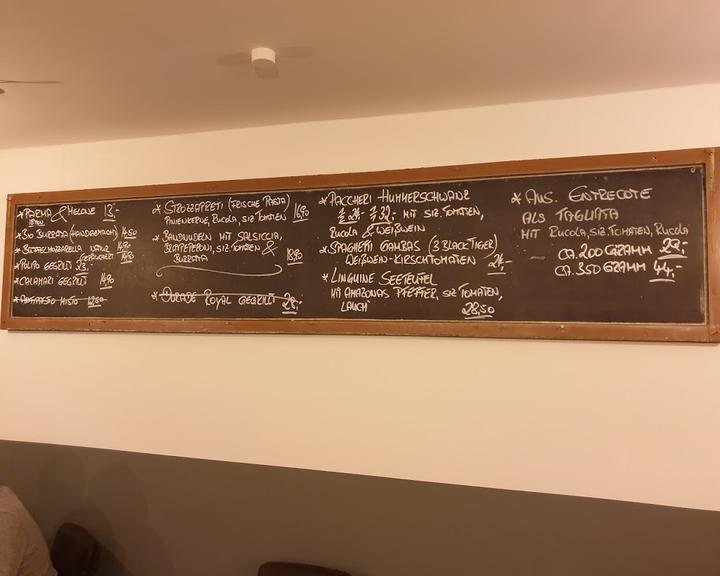 * PARMA & MELONE 13.-
* BIO BURRATA (HANDGEMACHT) 14,50
* BÜFFELMOZZARELLA NATUR 14,90
GERÄUCHERT 14,90
* PULPO GEGRILLT 23.-
* CALAMARI GEGRILLT 14,90
* ANTIPASTO MISTO
* STROZZAPRETI (FRISCHE PASTA)
PINIENKERNE, RUCOLA, SIZ. TOMATEN 16,90
* BANDNUDELN MIT SALSICCIA,
BRATPEPERONI, SIZ. TOMATEN &
BURRATA 18,90
* DORADE ROYAL GEGRILLT 29.-
* PACCHERI HUMMERSCHWANZ
MIT SIZ. TOMATEN,
RUCOLA & WEIßWEIN
* SPAGHETTI GAMBAS (3 BLACK TIGER)
WEIßWEIN-KIRSCHTOMATEN 24.-
* LINGUINE SEETEUFEL
MIT AMAZONAS PFEFFER, SIZ. TOMATEN,
LAUCH 28,50
* AUS. ENTRECOTE
ALS TAGLIATA
MIT RUCOLA, SIZ. TOMATEN, RUCOLA
CA. 200 GRAMM 29.-
CA. 350 GRAMM 44.-